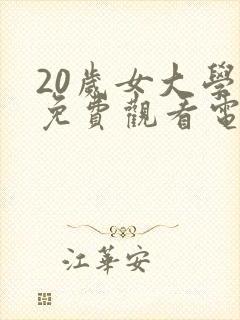 20歲女大學
免費觀看電
江華安